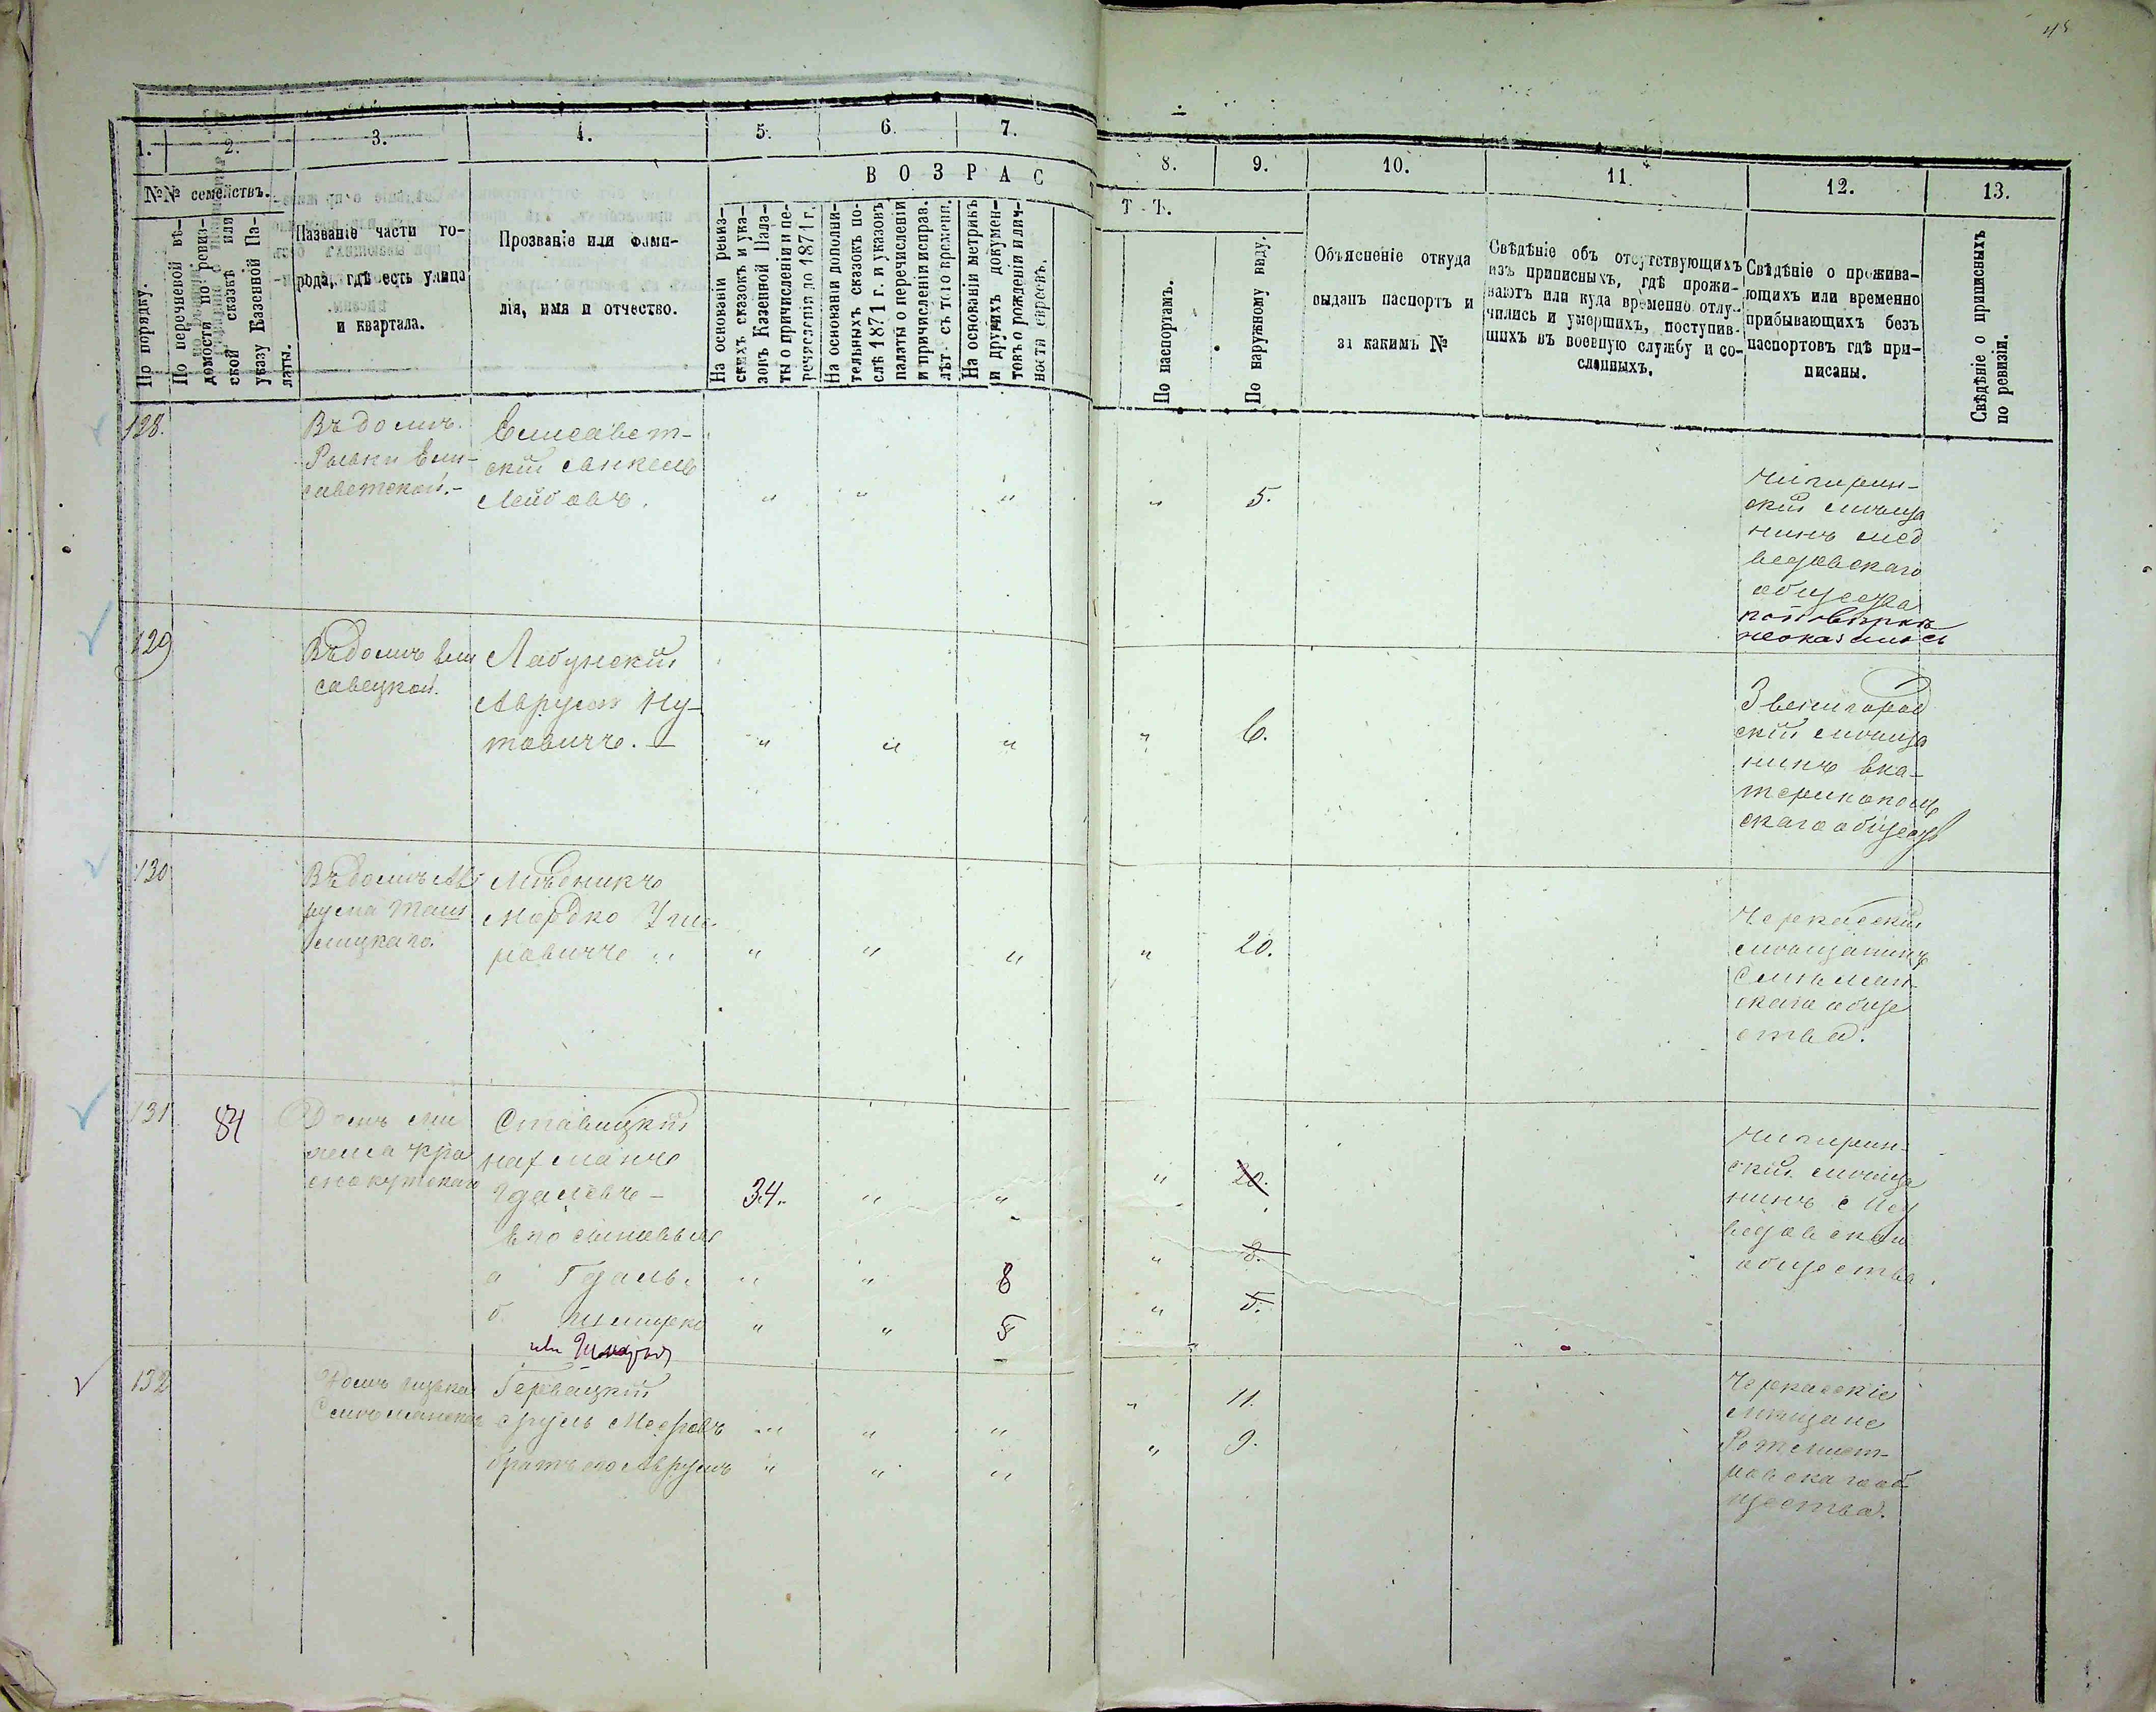 45
1.
2.
3.
4.
5.
6.
7.
8.
9.
10.
11.
12.
13.
№№ семействъ.
В О З Р А С
Т - Ъ.
По порядку.
По перечневой вѣ-
домости по ревиз-
ской сказкѣ или
указу Казенной Па-
латы.
Названіе части го-
рода, гдѣ есть улица
и квартала.
Прозваніе или фами-
лія, имя и отчество.
На основаніи ревиз-
скихъ сказокъ и ука-
зовъ Казенной Пала-
ты о причисленіи и пе-
речисленіи до 1871 г.
На основаніи дополни-
тельныхъ сказокъ по-
слѣ 1871 г. и указовъ
палаты о перечисленіи
и причисленіи исправ.
лѣт. съ того времени.
На основаніи метрикъ
и другихъ докумен-
товъ о рожденіи и лич-
ности евреевъ.
По паспортамъ.
По наружному виду.
Объясненіе откуда
выданъ паспортъ и
за какимъ №
Свѣдѣніе объ отсутствующихъ
изъ приписныхъ, гдѣ прожи-
ваютъ или куда временно отлу-
чились и умершихъ, поступив-
шихъ въ военную службу и со-
сланныхъ.
Свѣдѣніе о прожива-
ющихъ или временно
прибывающихъ безъ
паспортовъ гдѣ при-
писаны.
Свѣдѣніе о приписныхъ
по ревизіи.
128.
Въ домѣ
Рывки Ели-
саветской.-
Елисавет-
скій Анкель
Лейбовъ.
" " " " 5.
Чигирин-
скій мѣща
нинъ мед
ведовскаго
общества
неоказалось
129
Въ домѣ Ели
савецкой.
Лабунскій
Аврумъ Ну-
товичъ. -
" " " " 6.
Звенигород
скій мѣща
нинъ Ека-
теринополь
скаго общест
130
Въ домѣ Ав
рума
Мѣдникъ
Мордко
ровичъ "
" " " " 20.
Черкасскій
мѣщанинъ
Смѣлян-
скаго обще
ства.
131
84
Домъ
Кра
снокутскаго
Ставицкій
Нахманъ
Гдалевъ -
34. " " " 20.
Его сыновья
а Гдаль. " " 8 " 8.
б " " 5 " 5.
или
Чигирин-
скій мѣща
нинъ Мед
ведовскаго
общества.
132
Домъ
Гервацкій
Сруль Мееровъ " " " " 11.
братъ его Аврумъ " " " " 9.
Черкасскіе
мѣщане
Ротмист-
ровскаго об
щества.